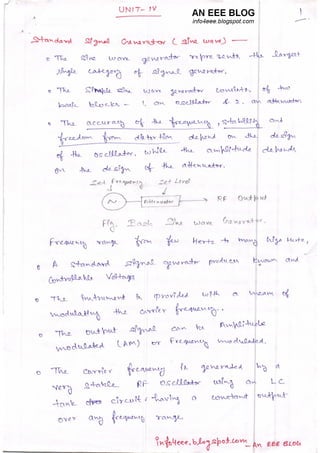 UNIT- IV
AN EEE BLOG
info4eee.blogspot.com
1
Standard Signal Generator ( Sine wave)
The Sine wave generator represents the largest
single category of signal generator.
The Simple Sine wave generator consists of two
basic blocks - 1. an oscillator & 2. an attenuator.
The accuracy of the frequency, stability and
freedom from distortion depend on the design
of the oscillator, while the amplitude depends
on the design of the attenuator.
Set Frequency Set Level
Attenuator RF Output
Fig. Basic Sine wave Generator.
Frequency range from few Hertz to many Giga Hertz,
A Standard signal generator produces known and
Controllable Voltages
The instrument is provided with a means of
modulating the carrier frequency.
The output signal can be Amplitude
modulated (AM) or Frequency modulated.
The carrier frequency is generated by a
very stable RF Oscillator using an LC
tank circuit, having a constant output
over any frequency range.
info4eee.blogspot.com An EEE BLOG